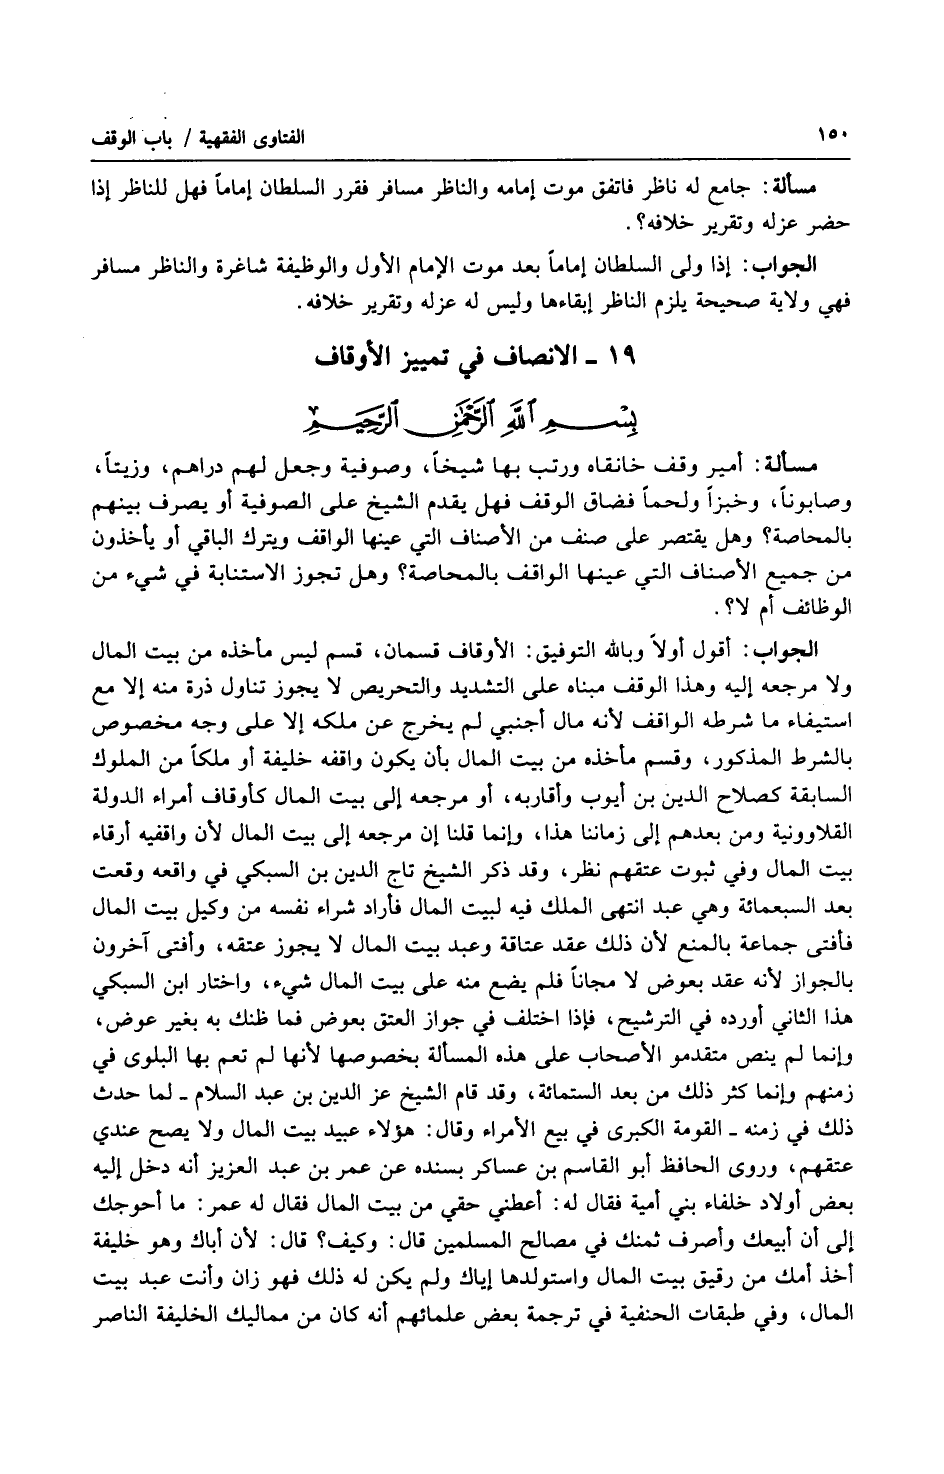 ١٥٠
الفتاوى الفقهية / باب الوقف
مسألة: جامع له ناظر فاتفق موت إمامه والناظر مسافر فقرر السلطان إماماً فهل للناظر إذا
حضر عزله وتقرير خلافه؟.
الجواب: إذا ولى السلطان إماماً بعد موت الإمام الأول والوظيفة شاغرة والناظر مسافر
فهي ولاية صحيحة يلزم الناظر إبقاءها وليس له عزله وتقرير خلافه.
١٩ - الانصاف في تمييز الأوقاف
بِسْمِ ٱللَّهِ ٱلرَّحْمَٰنِ ٱلرَّحِيمِ
مسألة: أمير وقف خانقاه ورتب بها شيخاً، وصوفية وجعل لهم دراهم، وزيتاً،
وصابوناً، وخبزاً ولحماً فضاق الوقف فهل يقدم الشيخ على الصوفية أو يصرف بينهم
بالمحاصة؟ وهل يقتصر على صنف من الأصناف التي عينها الواقف ويترك الباقي أو يأخذون
من جميع الأصناف التي عينها الواقف بالمحاصة؟ وهل تجوز الاستنابة في شيء من
الوظائف أم لا؟.
الجواب: أقول أولاً وبالله التوفيق: الأوقاف قسمان، قسم ليس مأخذه من بيت المال
ولا مرجعه إليه وهذا الوقف مبناه على التشديد والتحريص لا يجوز تناول ذرة منه إلا مع
استيفاء ما شرطه الواقف لأنه مال أجنبي لم يخرج عن ملكه إلا على وجه مخصوص
بالشرط المذكور، وقسم مأخذه من بيت المال بأن يكون واقفه خليفة أو ملكاً من الملوك
السابقة كصلاح الدين بن أيوب وأقاربه، أو مرجعه إلى بيت المال كأوقاف أمراء الدولة
القلاوونية ومن بعدهم إلى زماننا هذا، وإنما قلنا إن مرجعه إلى بيت المال لأن واقفيه أرقاء
بيت المال وفي ثبوت عتقهم نظر، وقد ذكر الشيخ تاج الدين بن السبكي في واقعه وقعت
بعد السبعمائة وهي عبد انتهى الملك فيه لبيت المال فأراد شراء نفسه من وكيل بيت المال
فأفتى جماعة بالمنع لأن ذلك عقد عتاقة وعبد بيت المال لا يجوز عتقه، وأفتى آخرون
بالجواز لأنه عقد بعوض لا مجاناً فلم يضع منه على بيت المال شيء، واختار ابن السبكي
هذا الثاني أورده في الترشيح، فإذا اختلف في جواز العتق بعوض فما ظنك به بغير عوض،
وإنما لم ينص متقدمو الأصحاب على هذه المسألة بخصوصها لأنها لم تعم بها البلوى في
زمنهم وإنما كثر ذلك من بعد الستمائة، وقد قام الشيخ عز الدين بن عبد السلام - لما حدث
ذلك في زمنه - القومة الكبرى في بيع الأمراء وقال: هؤلاء عبيد بيت المال ولا يصح عندي
عتقهم، وروى الحافظ أبو القاسم بن عساكر بسنده عن عمر بن عبد العزيز أنه دخل إليه
بعض أولاد خلفاء بني أمية فقال له: أعطني حقي من بيت المال فقال له عمر: ما أحوجك
إلى أن أبيعك وأصرف ثمنك في مصالح المسلمين قال: وكيف؟ قال: لأن أباك وهو خليفة
أخذ أمك من رقيق بيت المال واستولدها إياك ولم يكن له ذلك فهو زان وأنت عبد بيت
المال، وفي طبقات الحنفية في ترجمة بعض علمائهم أنه كان من مماليك الخليفة الناصر